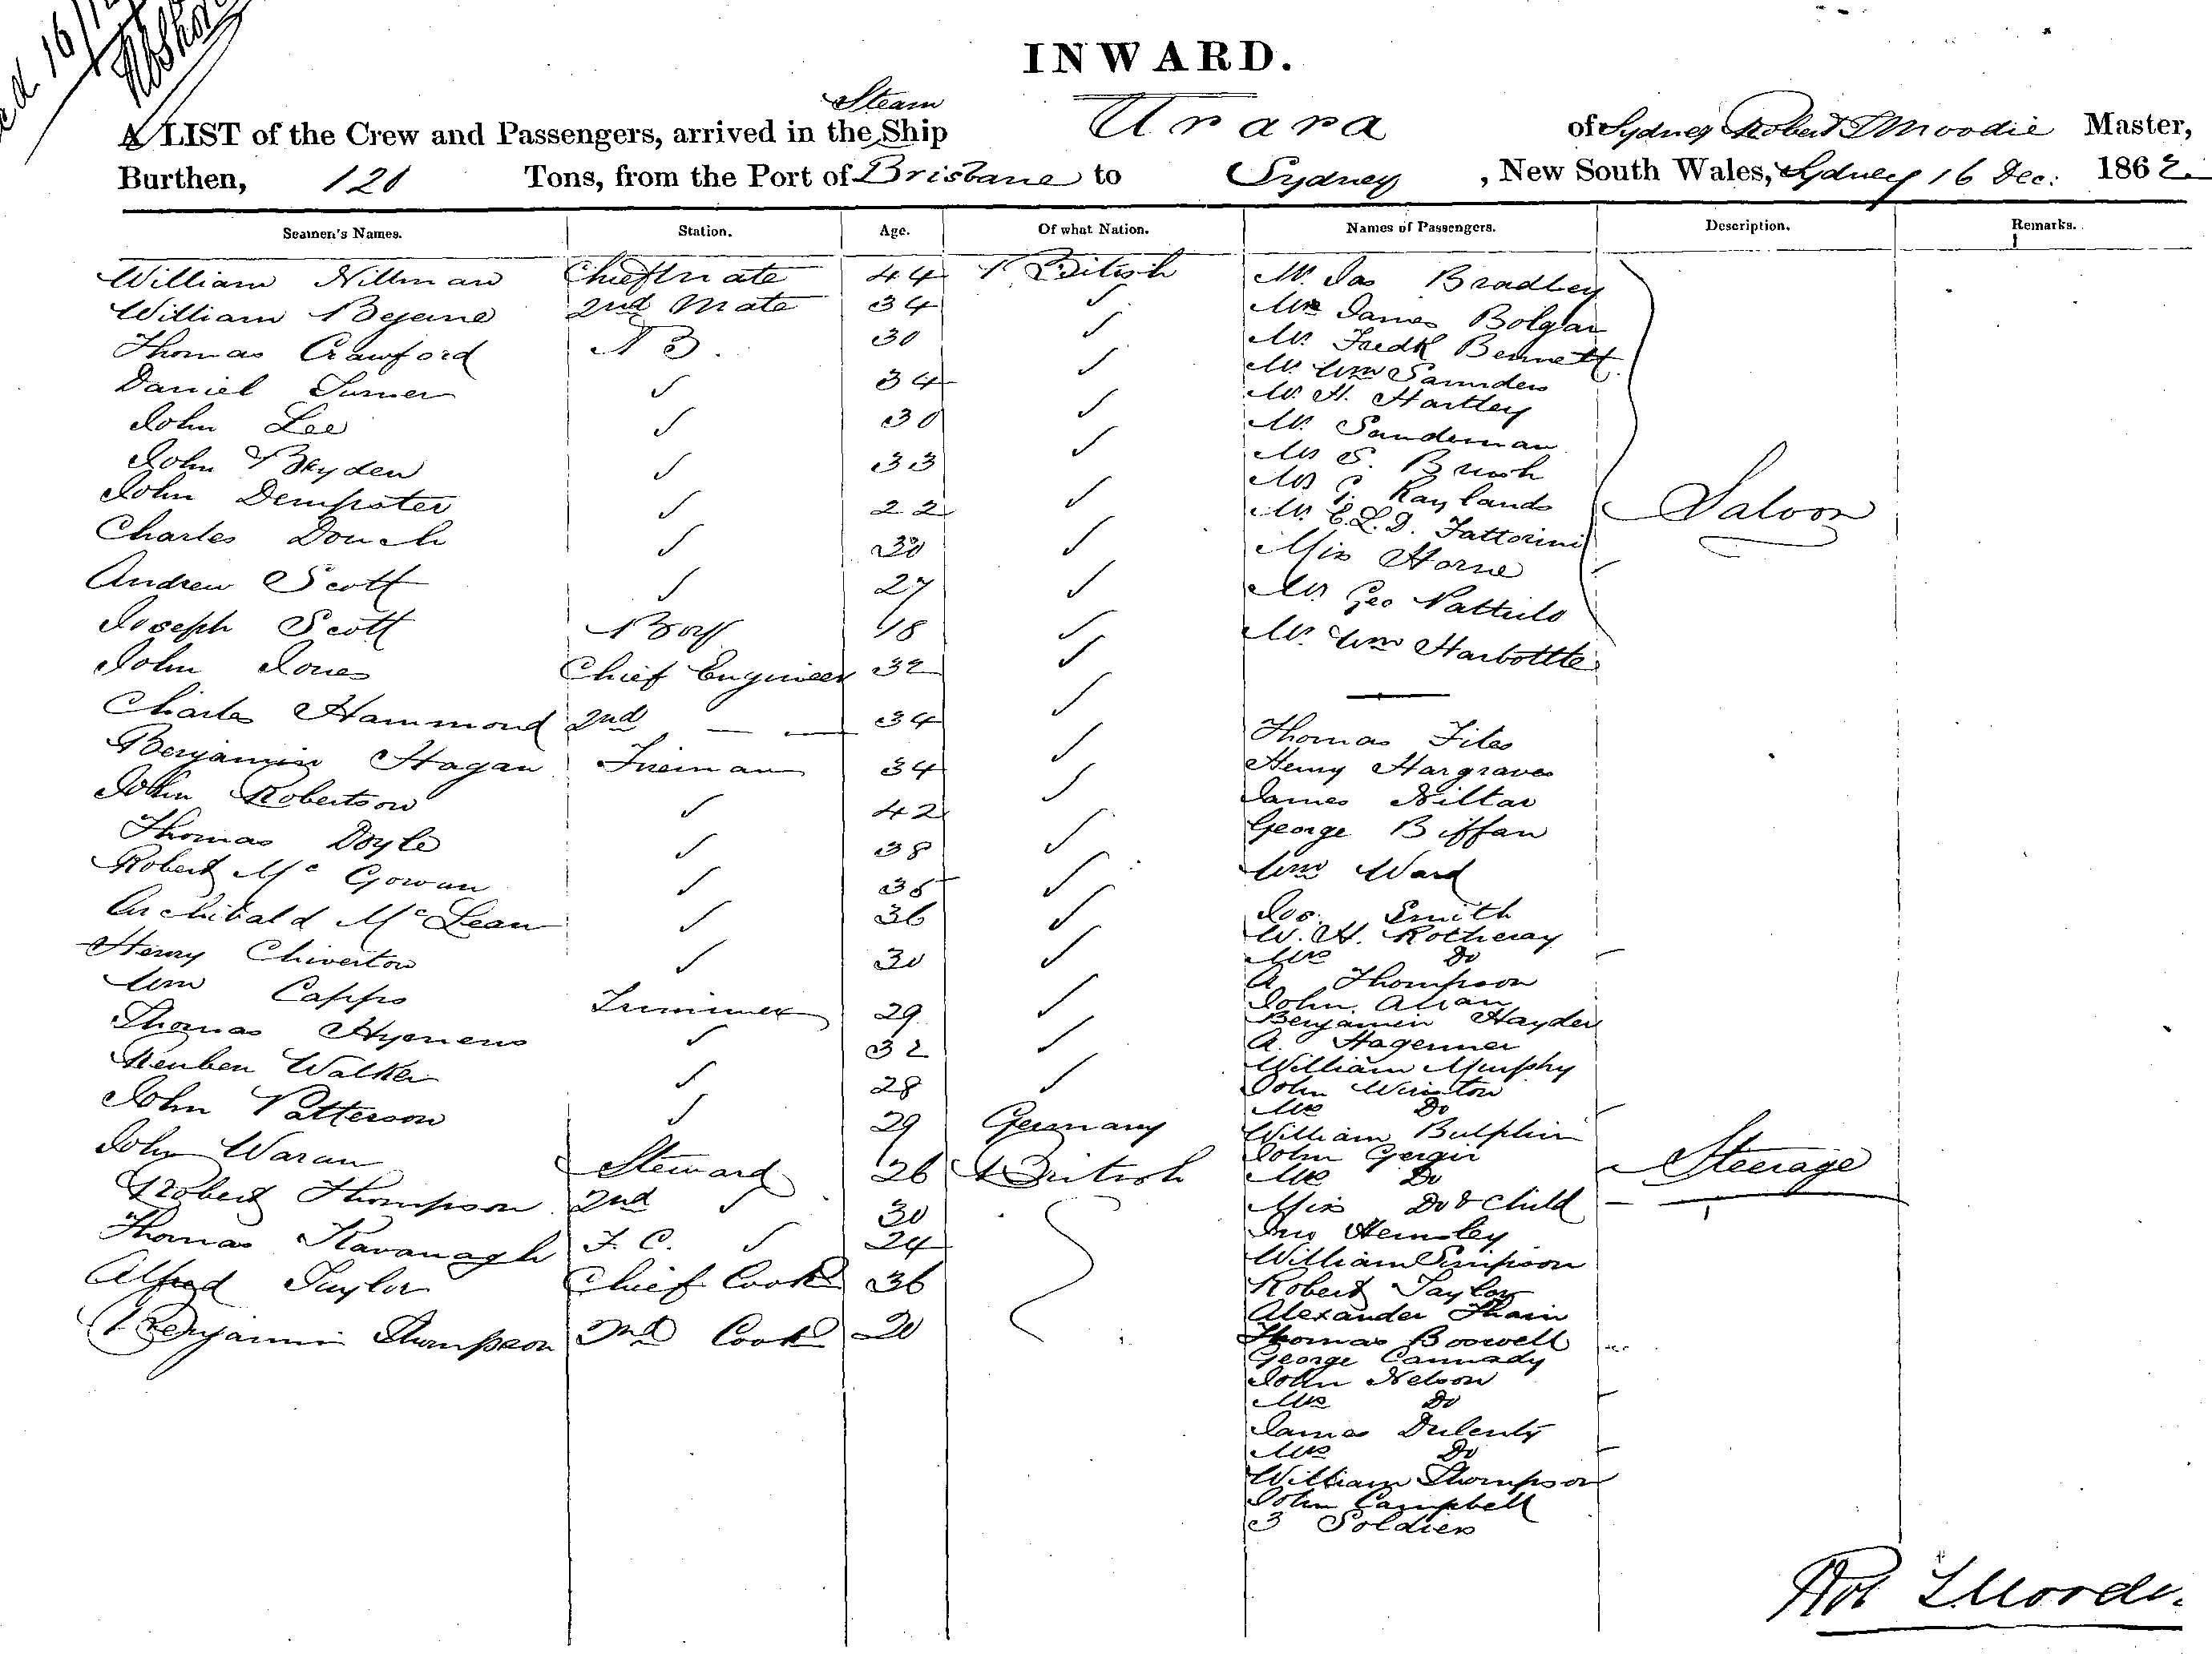 INWARD.
Steam
A LIST of the Crew and Passengers, arrived in the Ship Urara of Sydney Robert S Moodie Master,
Burthen, 120 Tons, from the Port of Brisbane to Sydney , New South Wales, Sydney 16 Dec: 1862
Seamen's Names. Station. Age. Of what Nation. Names of Passengers. Description. Remarks.
William Nillman Chief Mate 44 British
William 2nd Mate 34 ✓
Thomas Crawford AB. 30 ✓
Daniel Turner ✓ 34 ✓
John Lee ✓ 30 ✓
John Bryden ✓ 33 ✓
John Dempster ✓ 22 ✓
Charles Douch ✓ 30 ✓
Andrew Scott ✓ 27 ✓
Joseph Scott Boy 18 ✓
John Jones Chief Engineer 32 ✓
Charles Hammond 2nd — — 34 ✓
Benjamin Hagan Fireman 34 ✓
John Robertson ✓ 42 ✓
Thomas Doyle ✓ 38 ✓
Robert McGowan ✓ 35 ✓
Archibald McLean ✓ 36 ✓
Henry Chiverton ✓ 30 ✓
Wm Capps Trimmer 29 ✓
Thomas Hymens ✓ 32 ✓
Reuben Walker ✓ 28 ✓
John Patterson ✓ 29 Germany
John Waran Steward 26 British
Robert Thompson 2nd ✓ 30
Thomas Kavanagh F. C. ✓ 24
Alfred Taylor Chief Cook 36
Benjamin Thompson 2nd Cook 20
Mr. Jas Bradley
Mrs James Bolgar
Mr. Fredk Bennett
Mr. Wm Saunders
Mr. H. Hartley
Mr. Sandeman
Mr S. Brush
Mr Raylands
Mr. C.L.D. Fattorini
Miss Horne
Mr. Geo Nattrils
Mr. Wm Harbottle
Saloon
Thomas Files
Henry Hargraves
James Niltar
George Biffan
Wm Ward
Jos. Smith
W. H. Rotheray
Mrs Do
A Thompson
John Allan
Benjamin Hayden
A. Hagenner
William Murphy
John Winton
Mrs Do
William Bulphin
John Gergir
Mrs Do
Miss Do & Child
Jno Hemsley
William Simpson
Robert Taylor
Alexander Thain
Thomas Boswell
George Cannady
John Nelson
Mrs Do
James Dulenty
Mrs Do
William Thompson
John Campbell
3 Soldiers
Steerage
Rob S Moodie